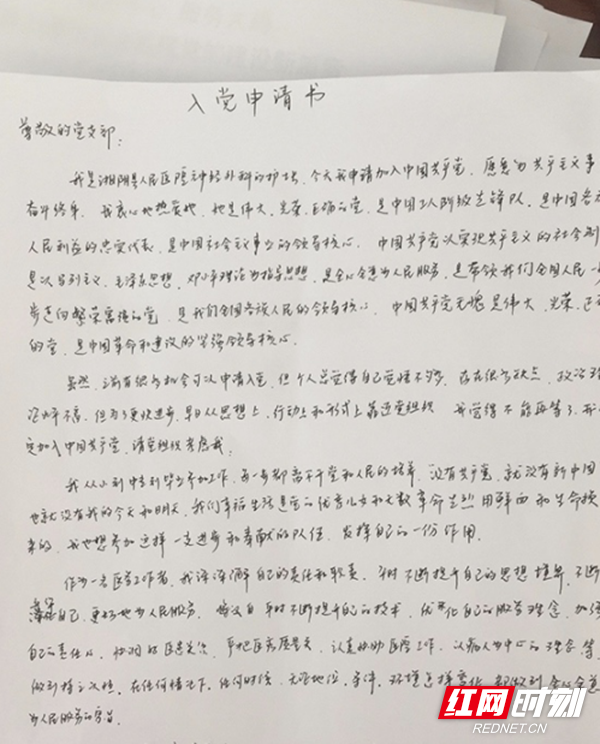 入党申请书
尊敬的党支部:
我是湘阴县人民医院神经外科的护士,今天我申请加入中国共产党,愿意为共产主义事
奋斗终身。我衷心地热爱党,她是伟大、光荣、正确的党,是中国工人阶级先锋队,是中国各
人民利益的忠实代表,是中国社会主义事业的领导核心。中国共产党以实现共产主义的社会制
是以马列主义、毛泽东思想、邓小平理论为指导思想,是全心全意为人民服务,是带领我们全国人民一
步走向繁荣富强的党,是我们全国各族人民的领导核心,中国共产党无愧是伟大、光荣、正
的党,是中国革命和建设的坚强领导核心。
虽然,之前有很多机会可以申请入党,但个人总觉得自己觉悟不够,存在很多缺点,政治理
论水平不高,但为了更快进步,早日从思想上,行动上和形式上靠近党组织,我觉得不能再等了,我
要加入中国共产党,请党组织考虑我。
我从小到中专到毕业参加工作,每一步都离不开党和人民的培养,没有共产党,就没有新中国
也就没有我的今天和明天,我们幸福生活是党的优秀儿女和无数革命先烈用鲜血和生命换
来的,我也想参加这样一支进步和奉献的队伍,发挥自己的一份作用。
作为一名医务工作者,我深深了解自己的责任和职责,平时不断提升自己的思想境界,不断
自己,更好地为人民服务,平时不断提升自己的技术,优化自己的服务理念,加强
自己的责任心,协调好医患关系,严把医疗质量关,认真协助医疗工作,以病人为中心的理念,等
做到持之以恒,在任何情况下,任何时候,无论地位、条件、环境怎样变化,都做到全心全意
为人民服务的宗旨。
红网时刻
REDNET.CN